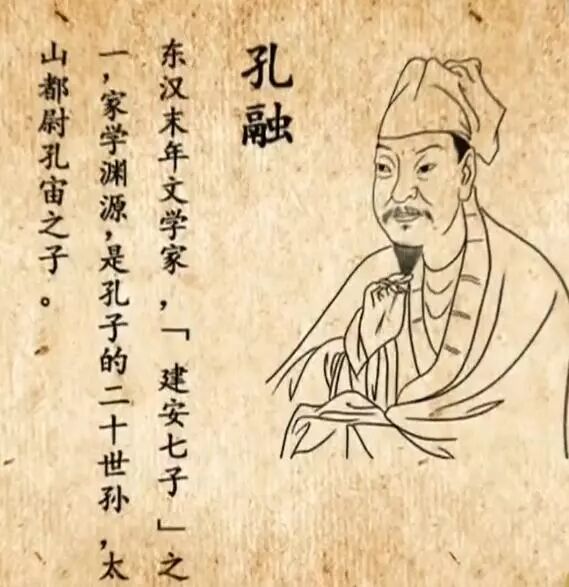 孔融
东汉末年文学家，「建安七子」之
一，家学渊源，是孔子的二十世孙，太
山都尉孔宙之子。